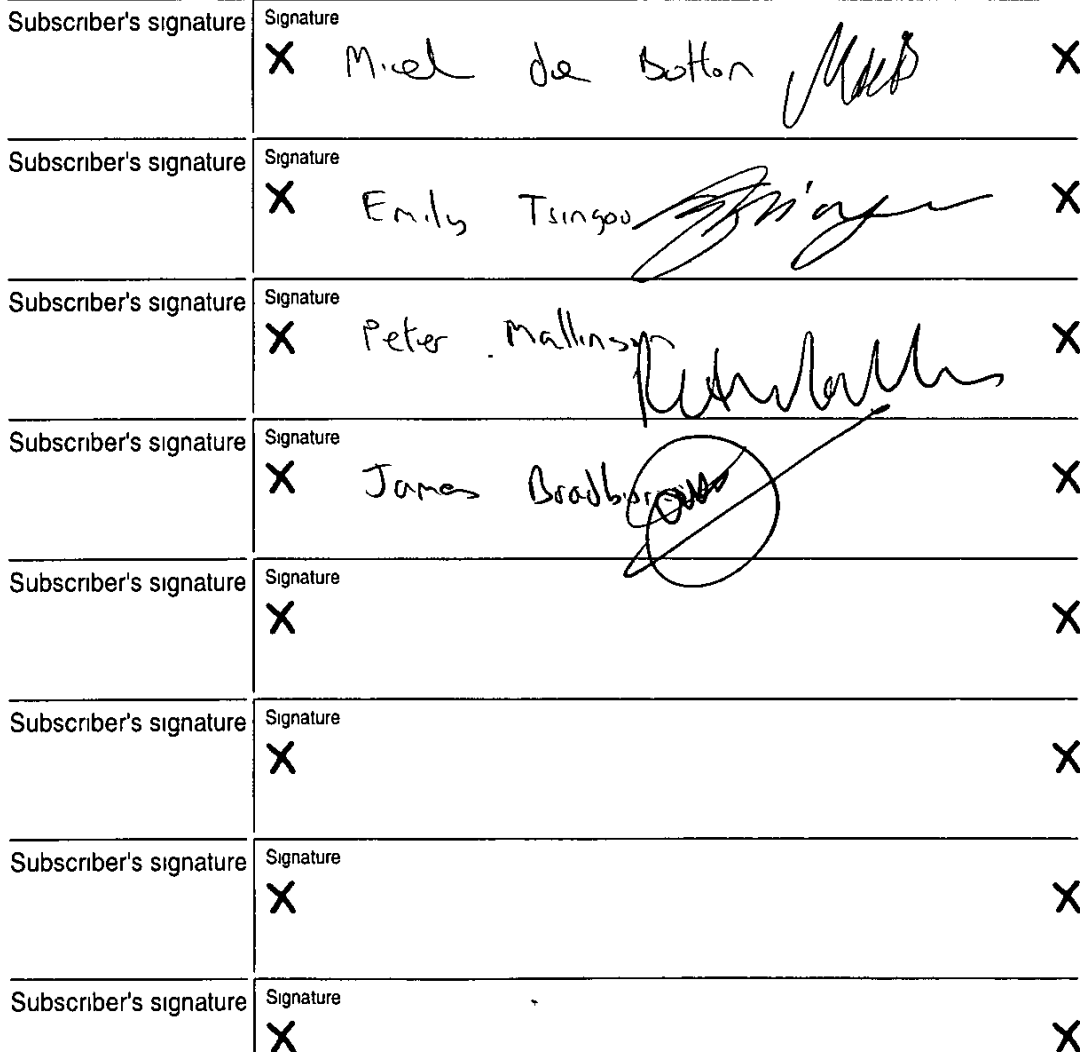 Subscriber's signature
Signature
X Micel de Botton X
Subscriber's signature
Signature
X Emily Tsingou X
Subscriber's signature
Signature
X Peter Mallinson X
Subscriber's signature
Signature
X James X
Subscriber's signature
Signature
X X
Subscriber's signature
Signature
X X
Subscriber's signature
Signature
X X
Subscriber's signature
Signature
X X